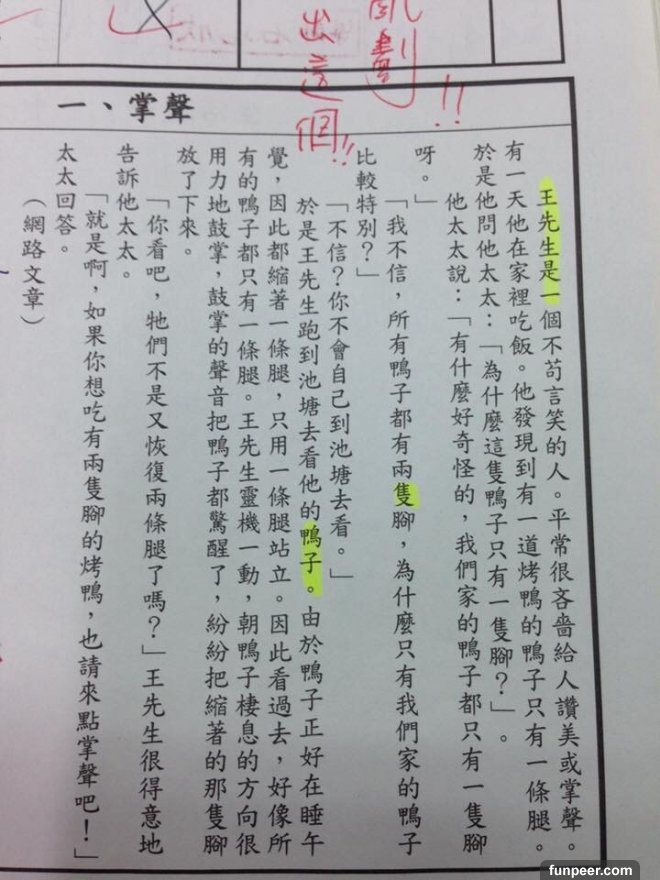 劃!!
出這個!!
一、掌聲
王先生是一個不苟言笑的人。平常很吝嗇給人讚美或掌聲。
有一天他在家裡吃飯。他發現到有一道烤鴨的鴨子只有一條腿。
於是他問他太太：「為什麼這隻鴨子只有一隻腳？」。
他太太說：「有什麼好奇怪的，我們家的鴨子都只有一隻腳
呀。」
「我不信，所有鴨子都有兩隻腳，為什麼只有我們家的鴨子
比較特別？」
「不信？你不會自己到池塘去看。」
於是王先生跑到池塘去看他的鴨子。由於鴨子正好在睡午
覺，因此都縮著一條腿，只用一條腿站立。因此看過去，好像所
有的鴨子都只有一條腿。王先生靈機一動，朝鴨子棲息的方向很
用力地鼓掌，鼓掌的聲音把鴨子都驚醒了，紛紛把縮著的那隻腳
放了下來。
「你看吧，牠們不是又恢復兩條腿了嗎？」王先生很得意地
告訴他太太。
「就是啊，如果你想吃有兩隻腳的烤鴨，也請來點掌聲吧！」
太太回答。
（網路文章）
funpeer.com